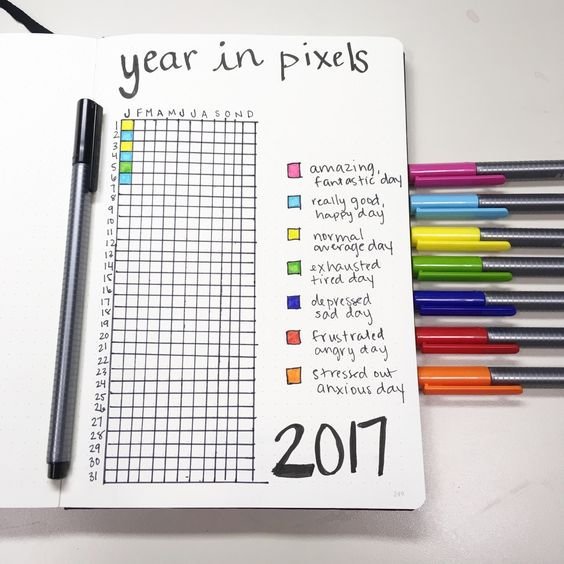 year in pixels
J F M A M J J A S O N D
1
2
3
4
5
6
7
8
9
10
11
12
13
14
15
16
17
18
19
20
21
22
23
24
25
26
27
28
29
30
31
amazing,
fantastic day
really good,
happy day
normal
average day
exhausted
tired day
depressed
sad day
frustrated
angry day
stressed out
anxious day
2017
249